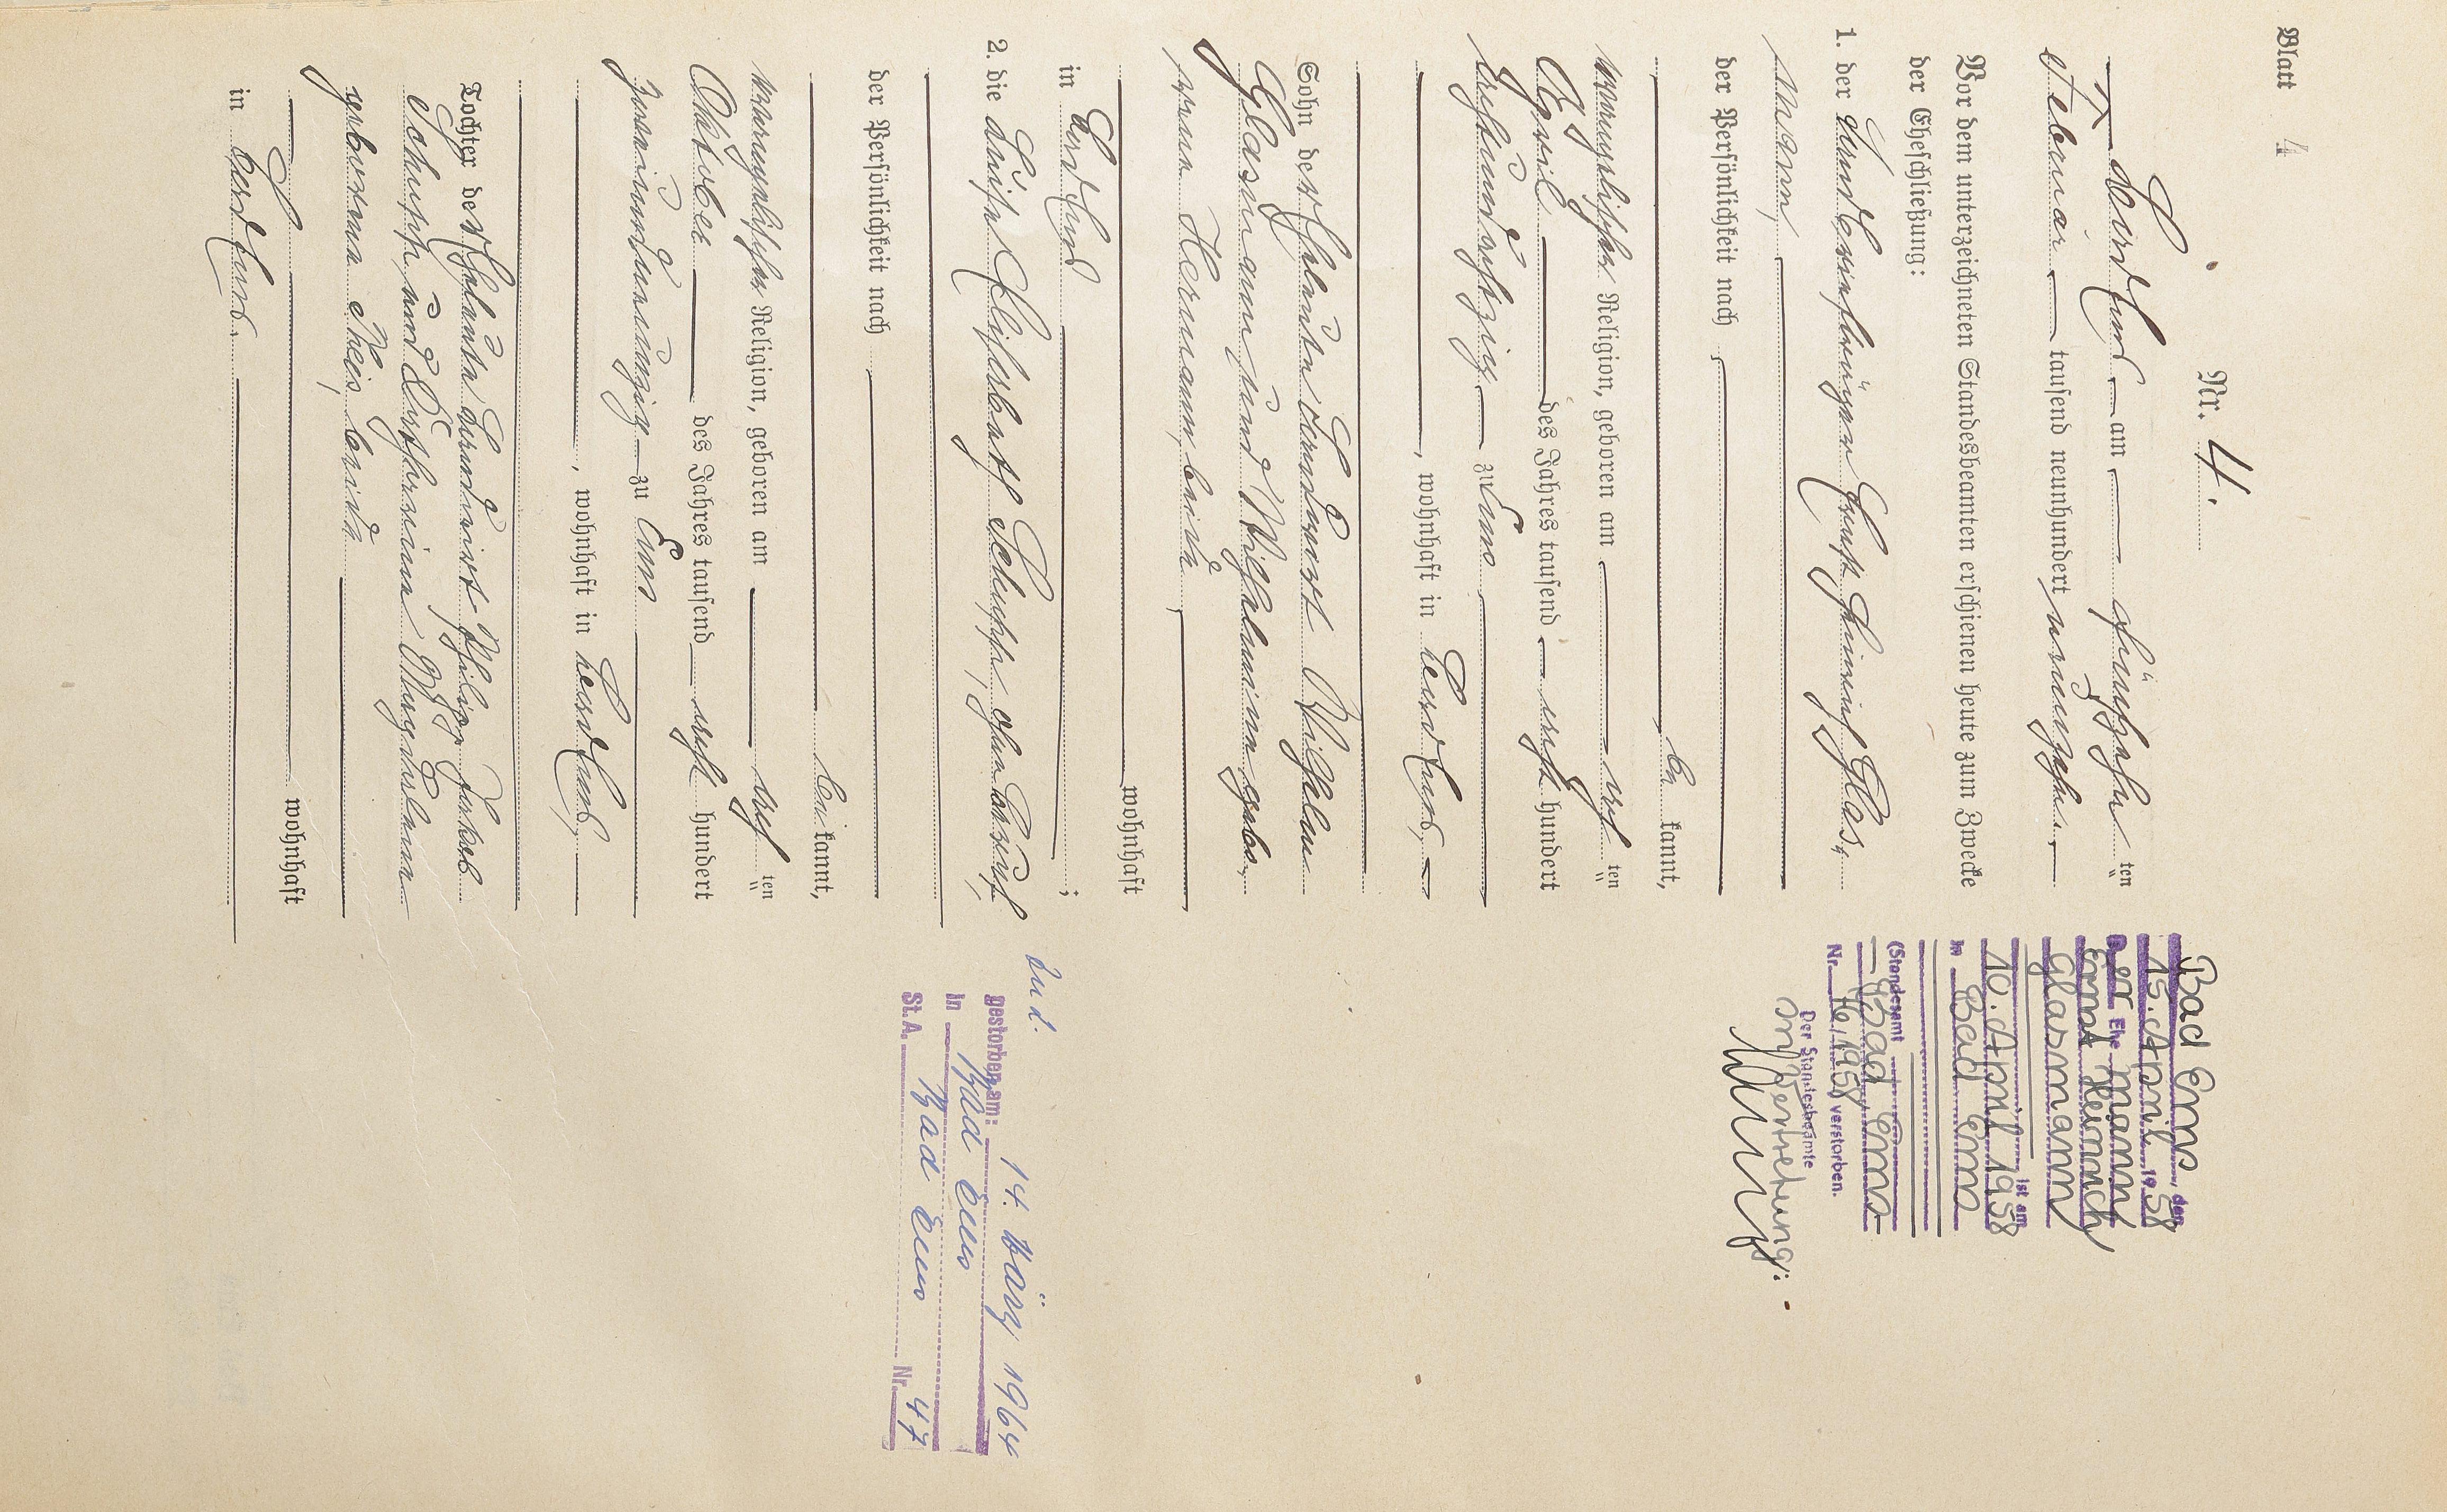 Blatt 4
Nr. 4.
am fünfzehnten
Februar tausend neunhundert neunzehn.
Vor dem unterzeichneten Standesbeamten erschienen heute zum Zwecke
der Eheschließung:
1. der Ernst Heinrich Glas-
mann,
der Persönlichkeit nach
be kannt,
evangelischer Religion, geboren am ten
April des Jahres tausend acht hundert
zu Ems
, wohnhaft in
Sohn der Eheleute Landwirt Wilhelm
Glasmann und Wilhelmine gebo-
rene Hermann, beide
wohnhaft
in ;
2. die Luise Elisabeth Schupp, ohne Beruf,
der Persönlichkeit nach
be kannt,
evangelischer Religion, geboren am ten
Oktober des Jahres tausend acht hundert
zu Ems
, wohnhaft in
Tochter der Eheleute Landwirt Philipp Jakob
Schupp und Katharine Magdalene
geborene Theis, beide
wohnhaft
in
Bad Ems, den
15. April 1958
Der Ehemann
Ernst Heinrich
Glasmann
ist am
10. April 1958
in Bad Ems
(Standesamt
Bad Ems
Nr. /1958) verstorben.
Der Standesbeamte
In Vertretung:
Zu 2.
gestorben am: 14. März 1964
in Bad Ems
St. A. Bad Ems Nr. 47